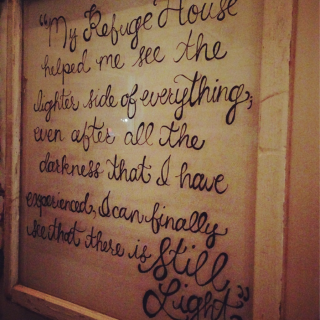 "My Refuge House
helped me see the
lighter side of everything;
even after all the
darkness that I have
experienced, I can finally
see that there is Still
Light"